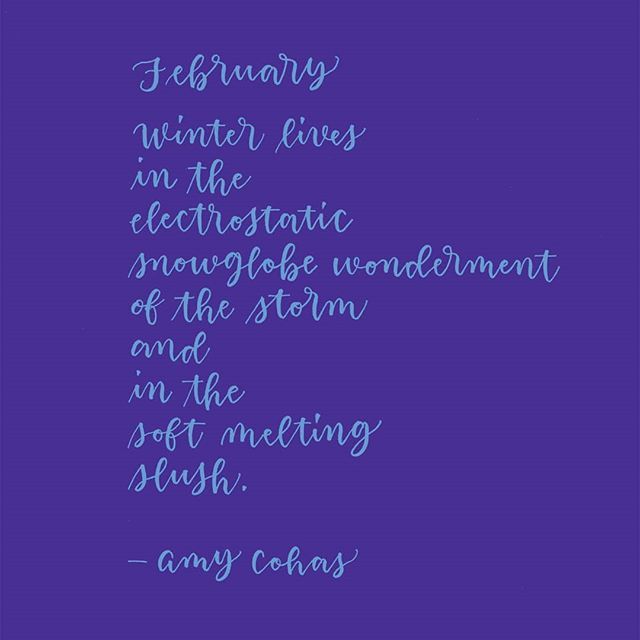 February
winter lives
in the
electrostatic
snowglobe wonderment
of the storm
and
in the
soft melting
slush.
— Amy Cohas